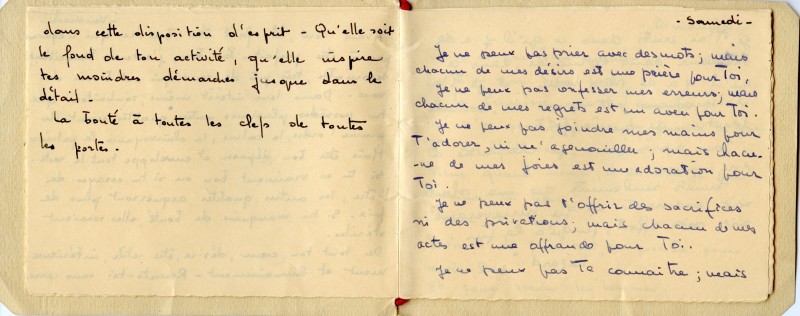 dans cette disposition d'esprit - Qu'elle soit
le fond de ton activité, qu'elle inspire
tes moindres démarches jusque dans le
détail.
La bonté a toutes les clefs de toutes
les portes.
- Samedi -
Je ne peux pas prier avec des mots; mais
chacun de mes désirs est une prière pour Toi.
Je ne peux pas confesser mes erreurs; mais
chacun de mes regrets est un aveu pour Toi.
Je ne peux pas joindre mes mains pour
T'adorer, ni m'agenouiller; mais chacu-
-ne de mes joies est une adoration pour
Toi.
Je ne peux pas t'offrir des sacrifices
ni des privations; mais chacun de mes
actes est une offrande pour Toi.
Je ne peux pas Te connaître; mais